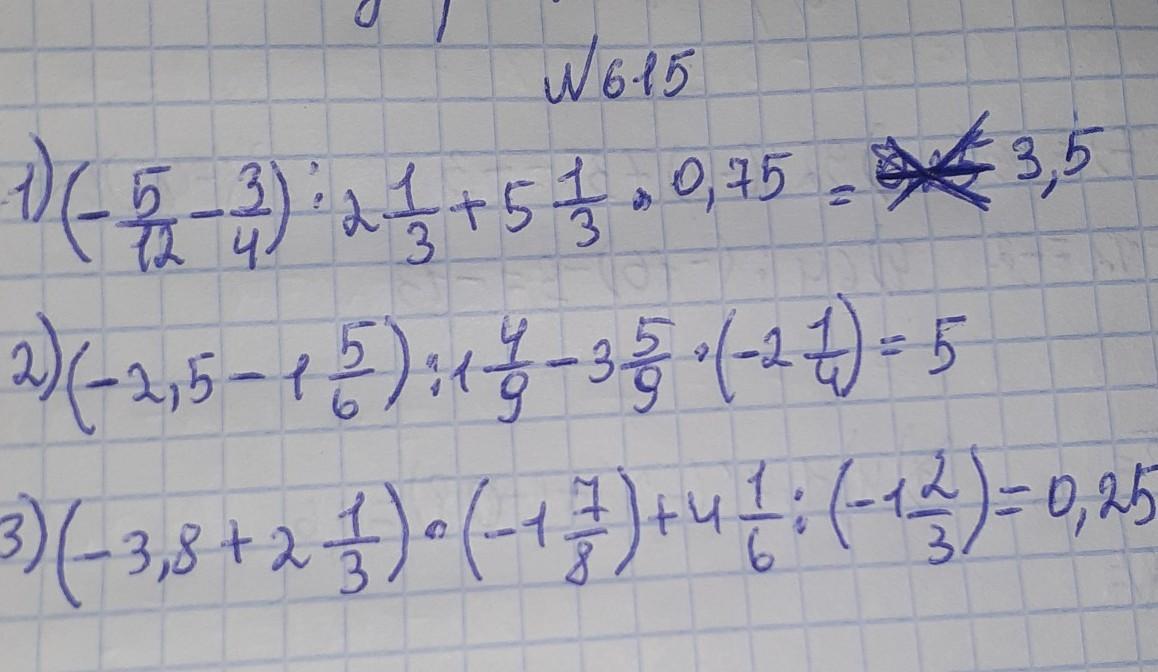 №615
1) (- 5/12 - 3/4) : 2 1/3 + 5 1/3 · 0,75 = 3,5
2) (-2,5 - 1 5/6) : 1 4/9 - 3 5/9 · (-2 1/4) = 5
3) (-3,8 + 2 1/3) · (-1 7/8) + 4 1/6 : (-1 2/3) = 0,25